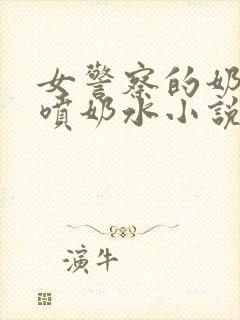 女警察的奶
喷奶水小說
演牛